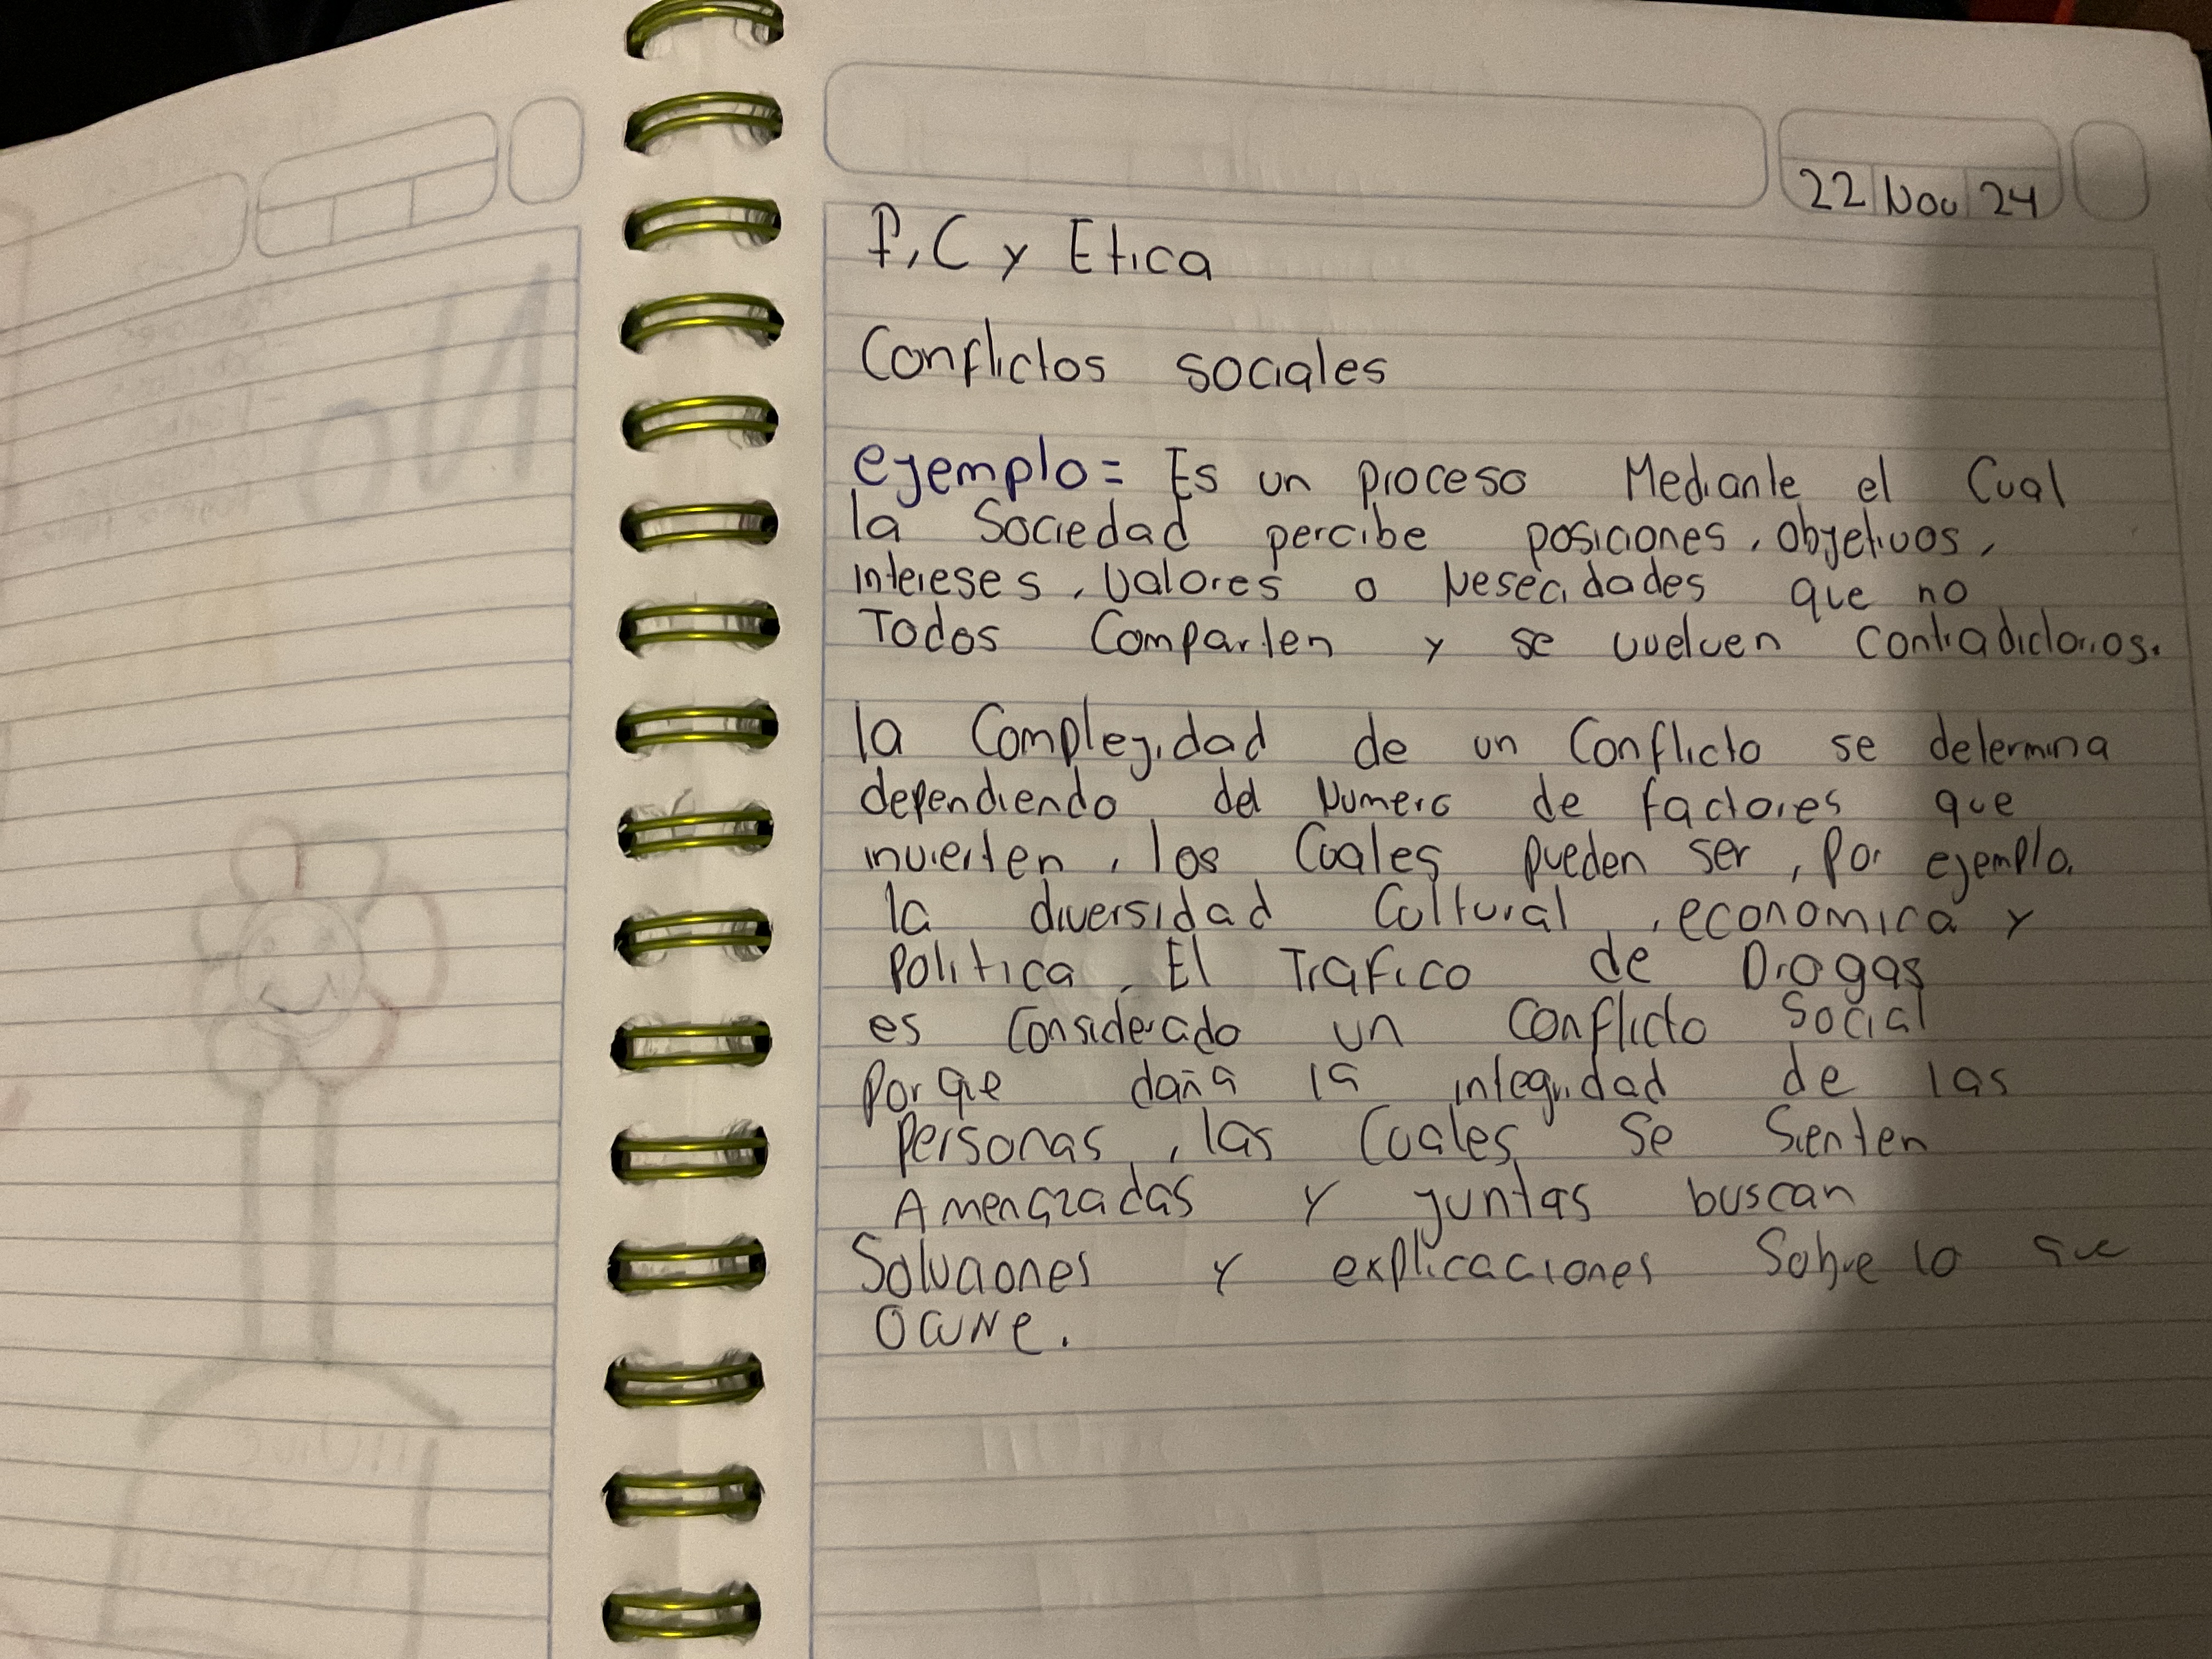 22 Nov 24
F, C y Etica
Conflictos sociales
ejemplo= Es un proceso Mediante el Cual
la Sociedad percibe posiciones, objetivos,
intereses, valores o Nesecidades que no
Todos Comparten y se vuelven contradictorios.
la Complejidad de un Conflicto se determina
dependiendo del Numero de factores que
invierten, los Cuales pueden ser, por ejemplo.
la diversidad Cultural, economica y
Politica. El Trafico de Drogas
es Considerado un Conflicto Social
Porque daña la integridad de las
Personas, las Cuales se Sienten
Amenazadas y juntas buscan
Soluciones y explicaciones Sobre lo que
Ocurre.